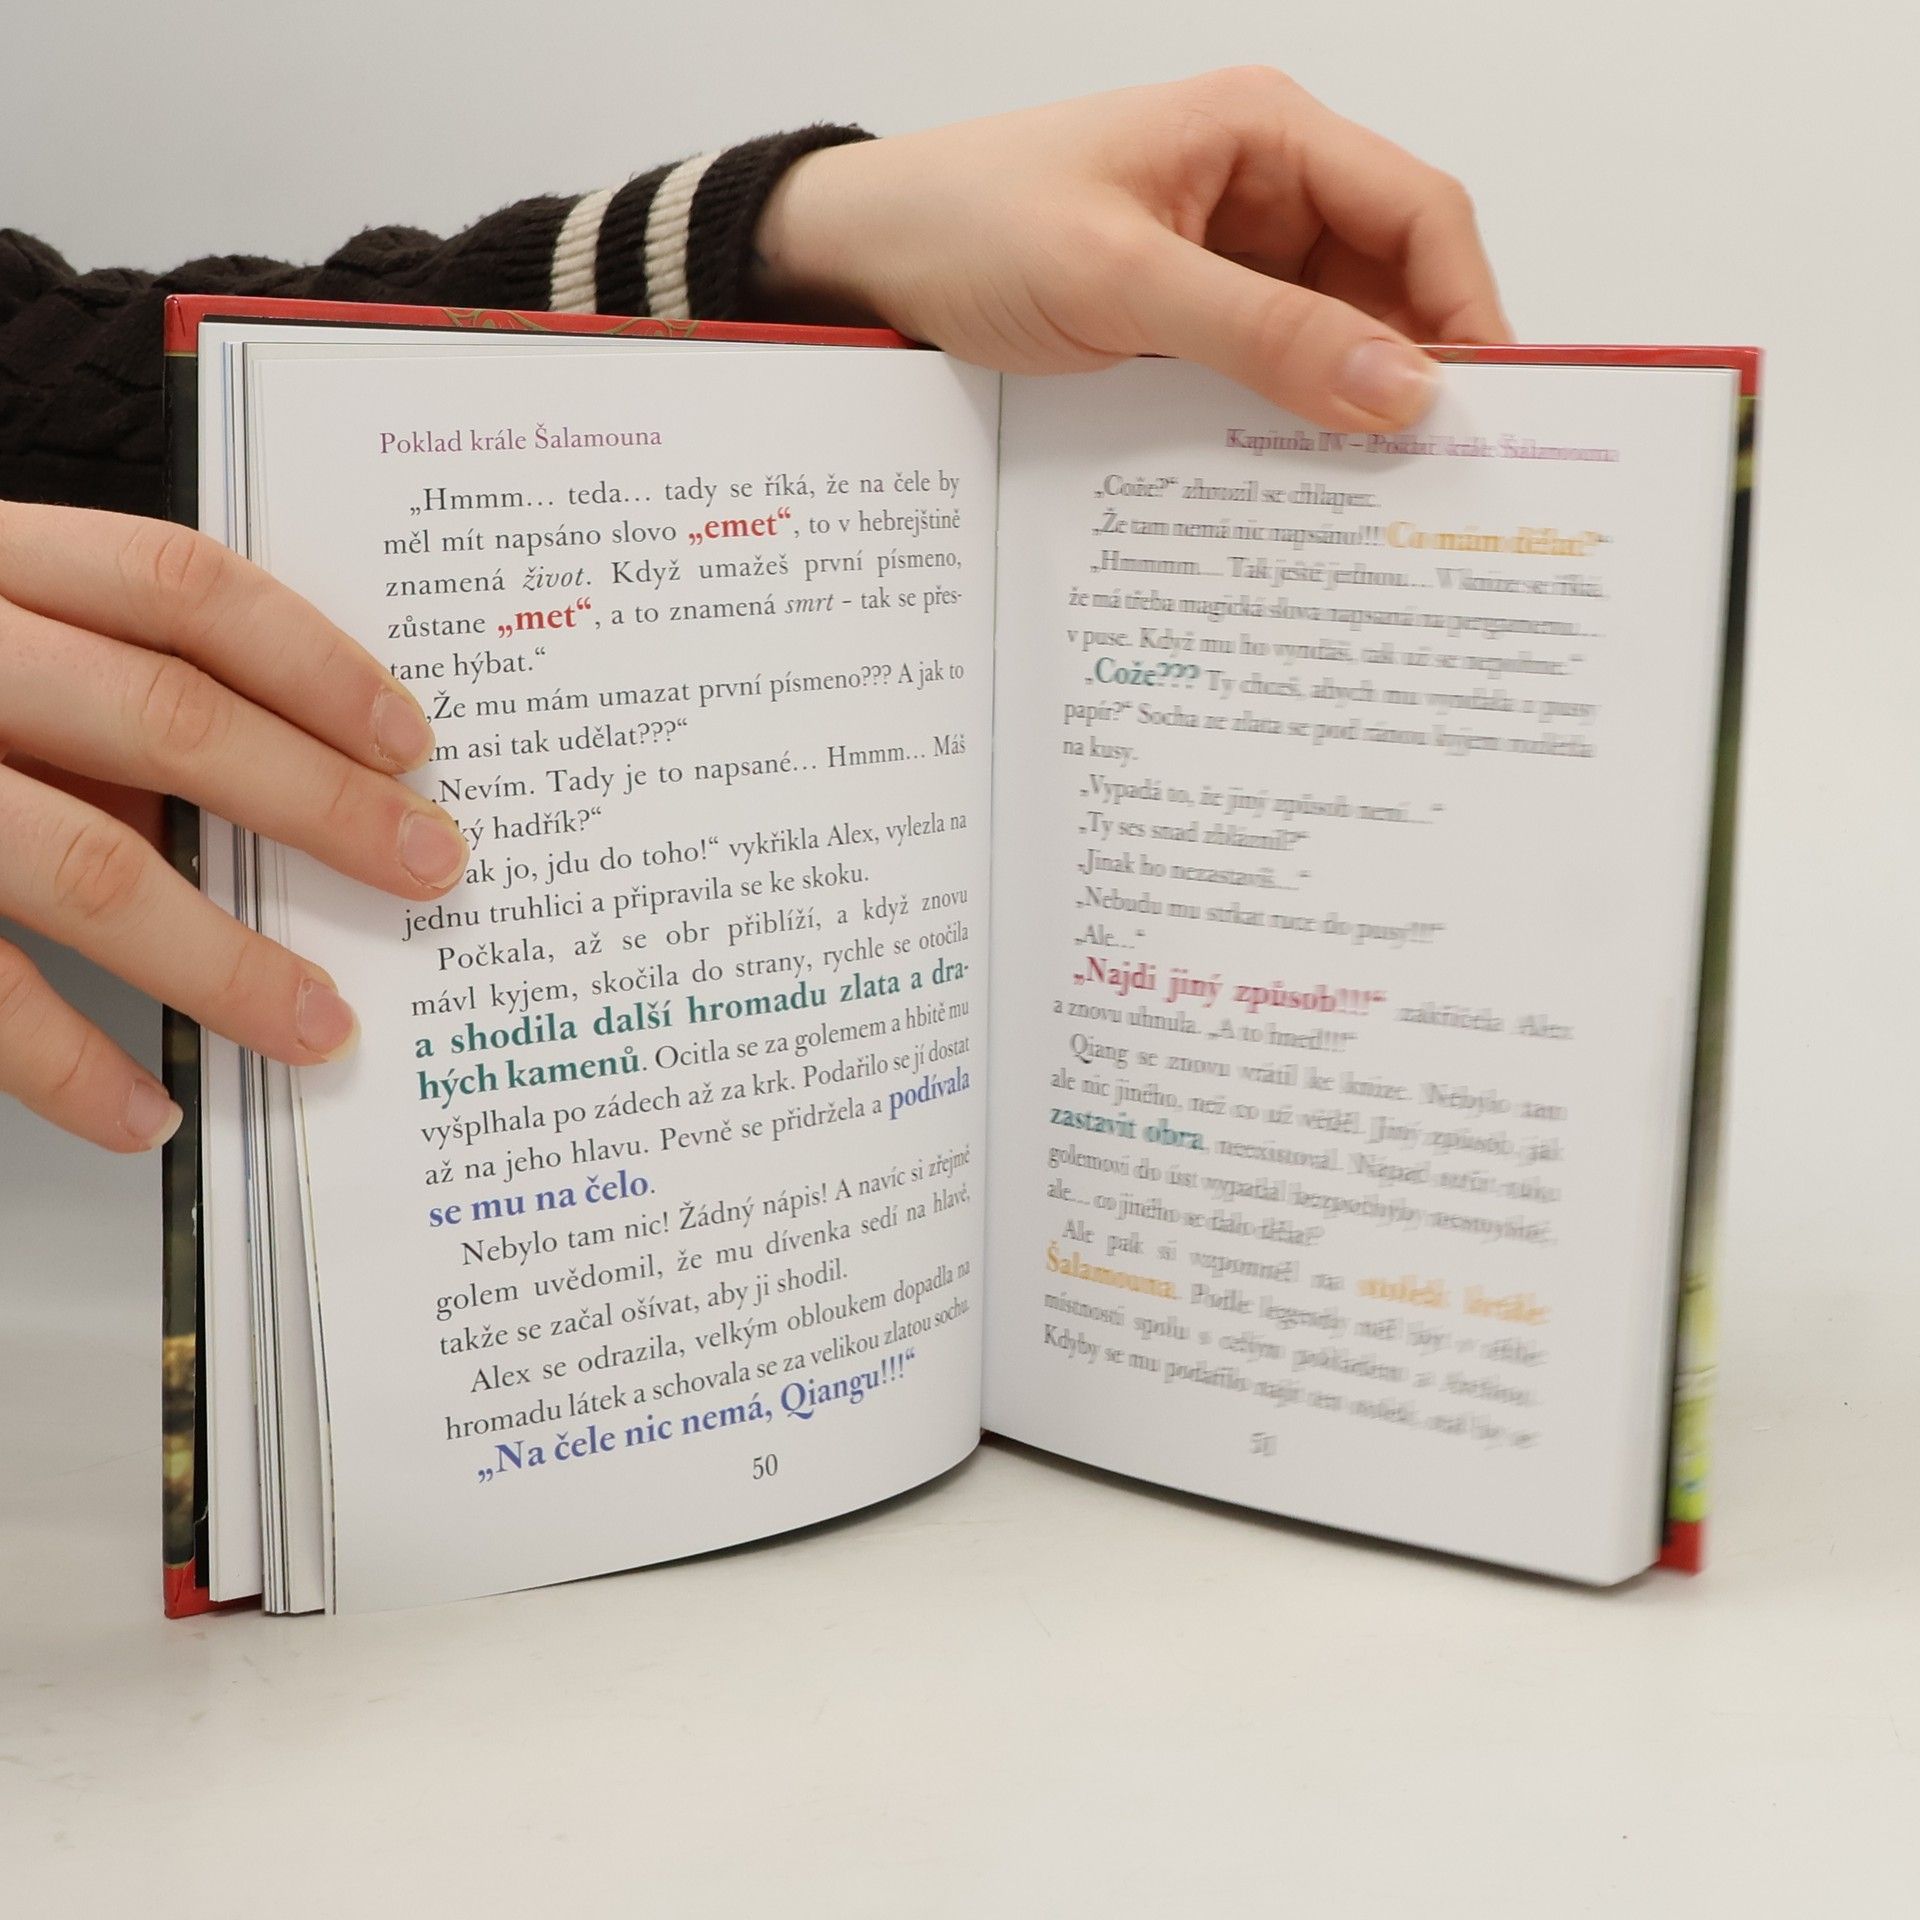 Poklad krále Šalamouna
„Hmmm… teda… tady se říká, že na čele by
měl mít napsáno slovo „emet“, to v hebrejštině
znamená život. Když umažeš první písmeno,
zůstane „met“, a to znamená smrt – tak se přes-
tane hýbat.“
„Že mu mám umazat první písmeno??? A jak to
asi tak udělat???“
„Nevím. Tady je to napsané… Hmmm… Máš
hadřík?“
jo, jdu do toho!“ vykřikla Alex, vylezla na
jednu truhlici a připravila se ke skoku.
Počkala, až se obr přiblíží, a když znovu
mávl kyjem, skočila do strany, rychle se otočila
a shodila další hromadu zlata a dra-
hých kamenů. Ocitla se za golemem a hbitě mu
vyšplhala po zádech až za krk. Podařilo se jí dostat
až na jeho hlavu. Pevně se přidržela a podívala
se mu na čelo.
Nebylo tam nic! Žádný nápis! A navíc si zřejmě
golem uvědomil, že mu dívenka sedí na hlavě,
takže se začal ošívat, aby ji shodil.
Alex se odrazila, velkým obloukem dopadla na
hromadu látek a schovala se za velikou zlatou sochu.
„Na čele nic nemá, Qiangu!!!“
50
Kapitola IV – Poklad krále Šalamouna
„Cože?“ zhrozil se chlapec.
„Že tam nemá nic napsáno!!! Co mám dělat?“
„Hmmmm… Tak ještě jednou… V knize se říká,
že má třeba magická slova napsaná na pergamenu…
v puse. Když mu ho vyndáš, tak už se nepohne.“
„Cože??? Ty chceš, abych mu vyndala z pusy
papír?“ Socha ze zlata se pod ránou kyjem rozlétla
na kusy.
„Vypadá to, že jiný způsob není…“
„Ty ses snad zbláznil?“
„Jinak ho nezastavíš…“
„Nebudu mu strkat ruce do pusy!!!“
„Ale…“
„Najdi jiný způsob!!!“ zakřičela Alex
a znovu uhnula. „A to hned!!!“
Qiang se znovu vrátil ke knize. Nebylo tam
ale nic jiného, než co už věděl. Jiný způsob, jak
zastavit obra, neexistoval. Nápad strčit ruku
golemovi do úst vypadal bezpochyby nesmyslně,
ale… co jiného se dalo dělat?
Ale pak si vzpomněl na krále
Šalamouna. Podle legendy měl být v téhle
místnosti spolu s celým pokladem a
Kdyby se mu podařilo najít měl by se
51